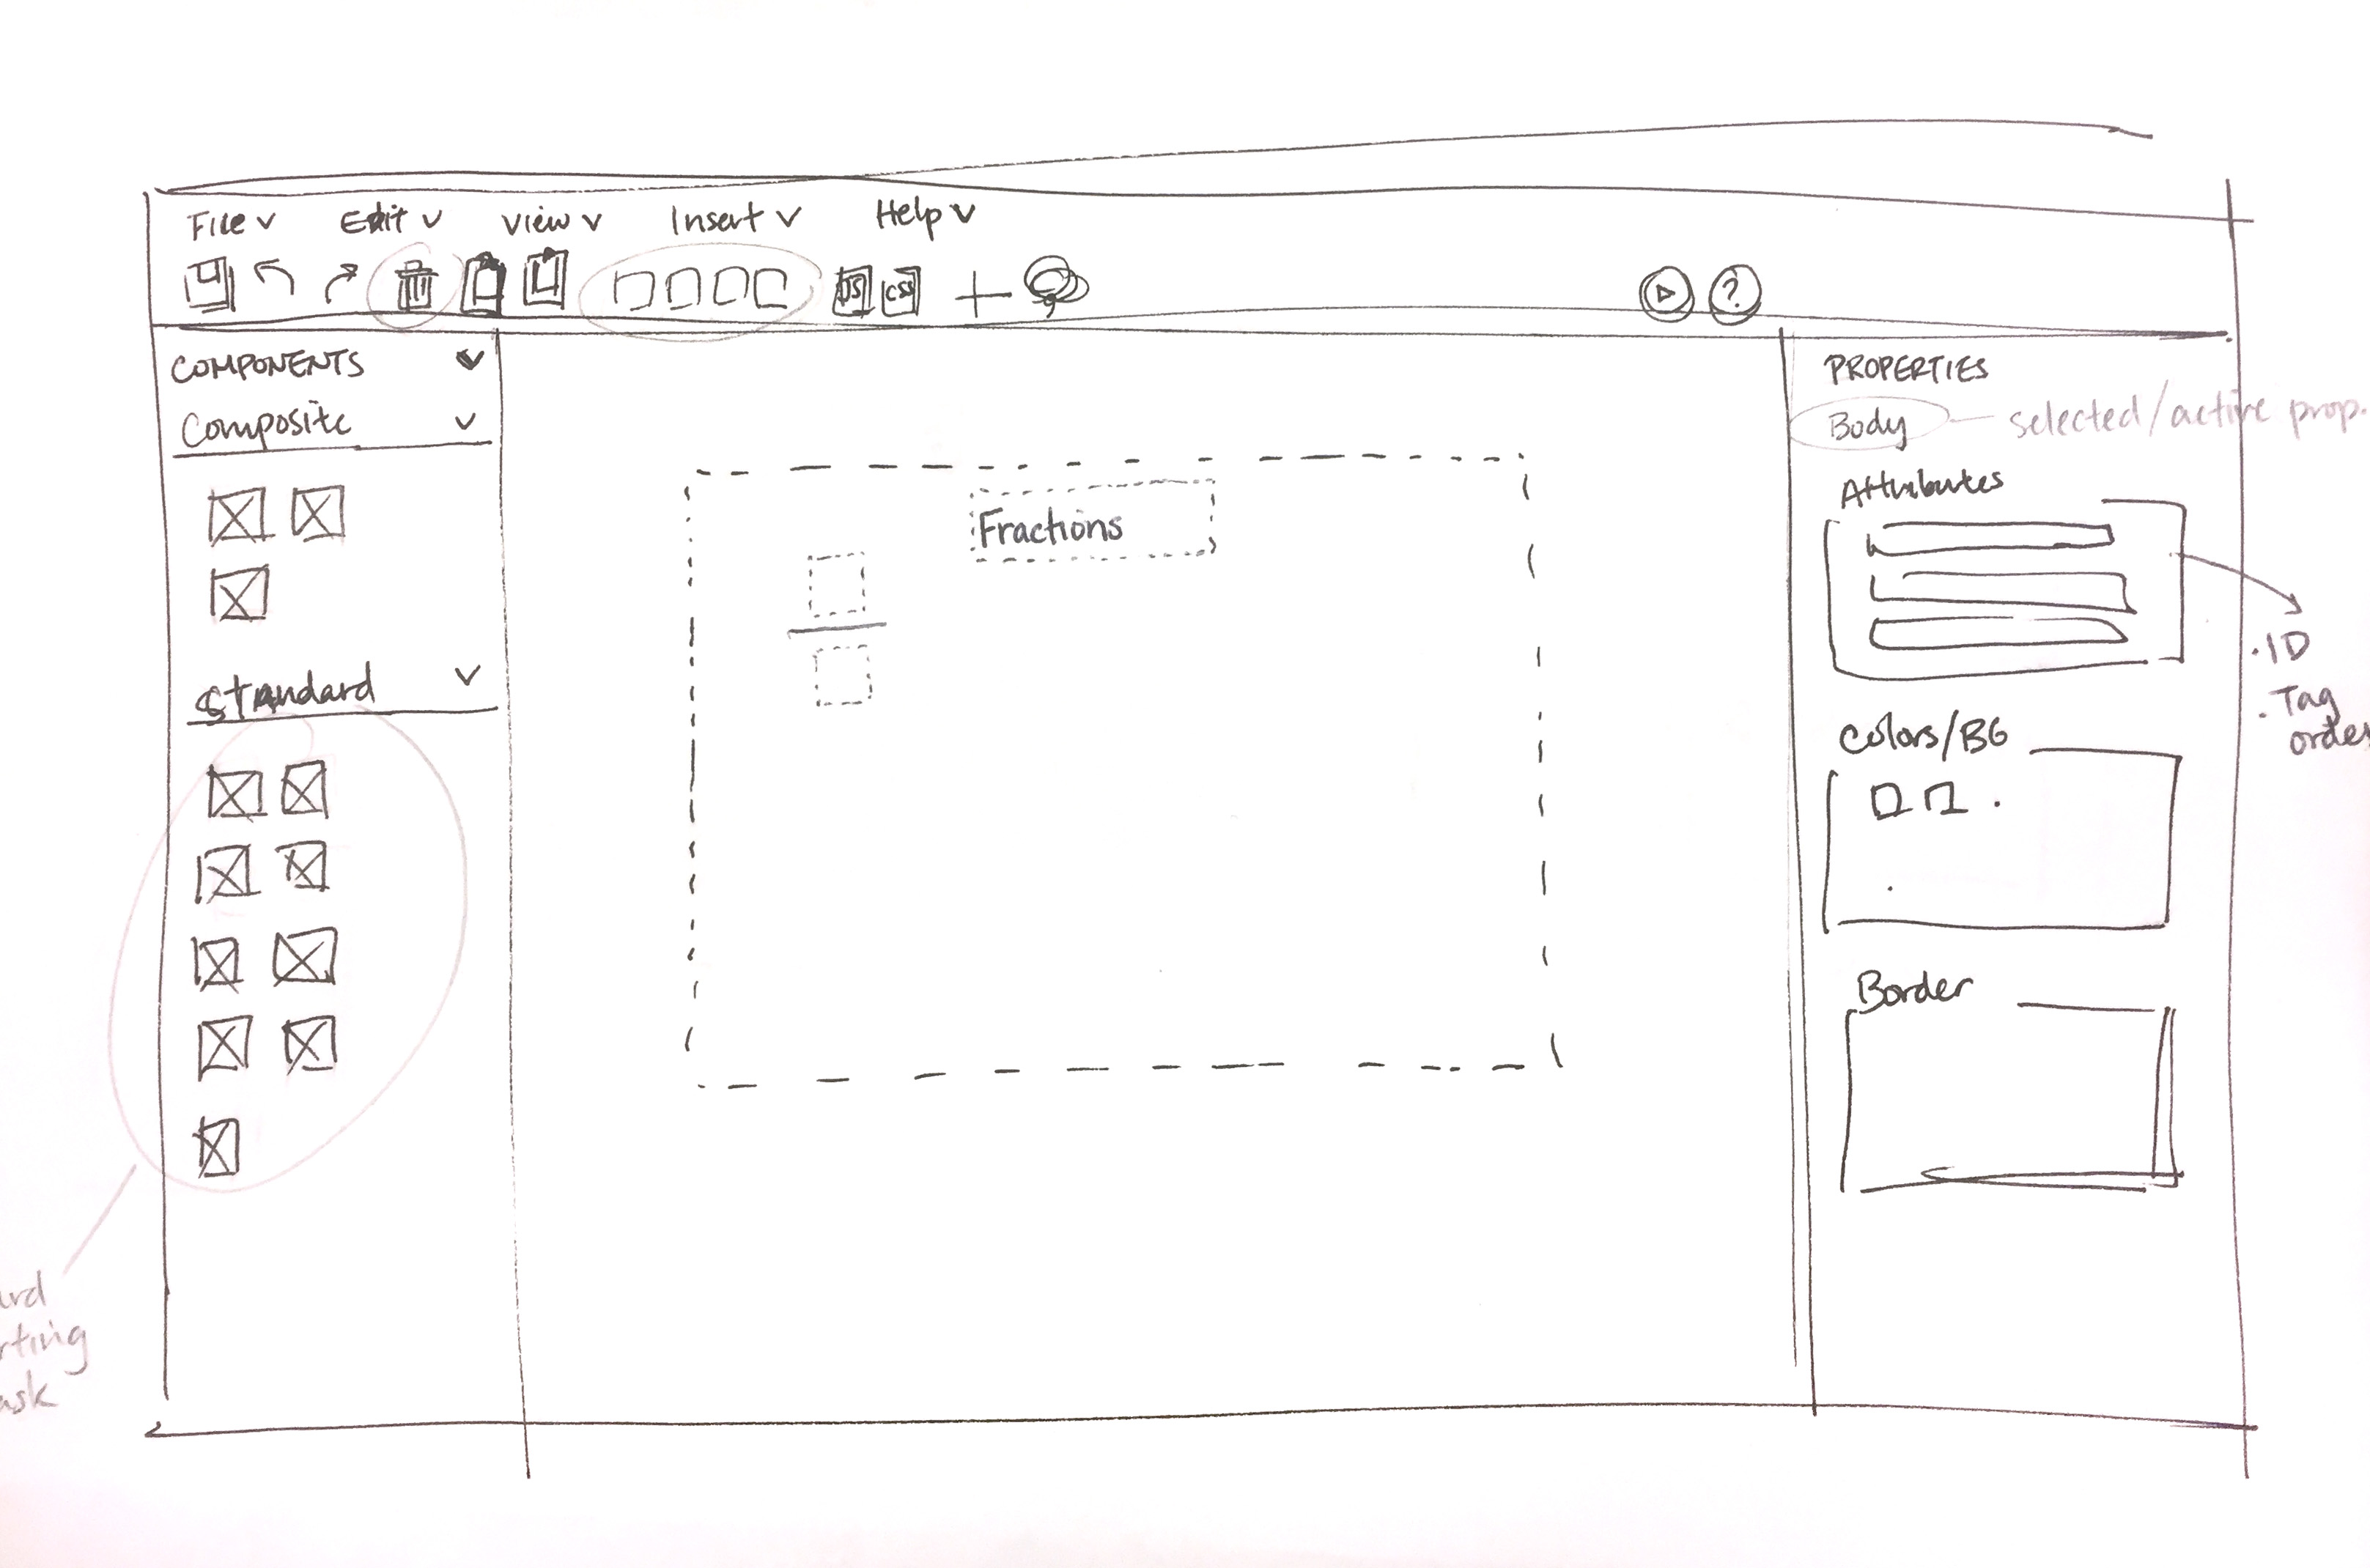 File Edit View Insert Help
JS CSS ?
COMPONENTS
Composite
Standard
Fractions
PROPERTIES
Body selected/active prop.
Attributes
. ID
. Tag
order
Colors/BG
Border
ask